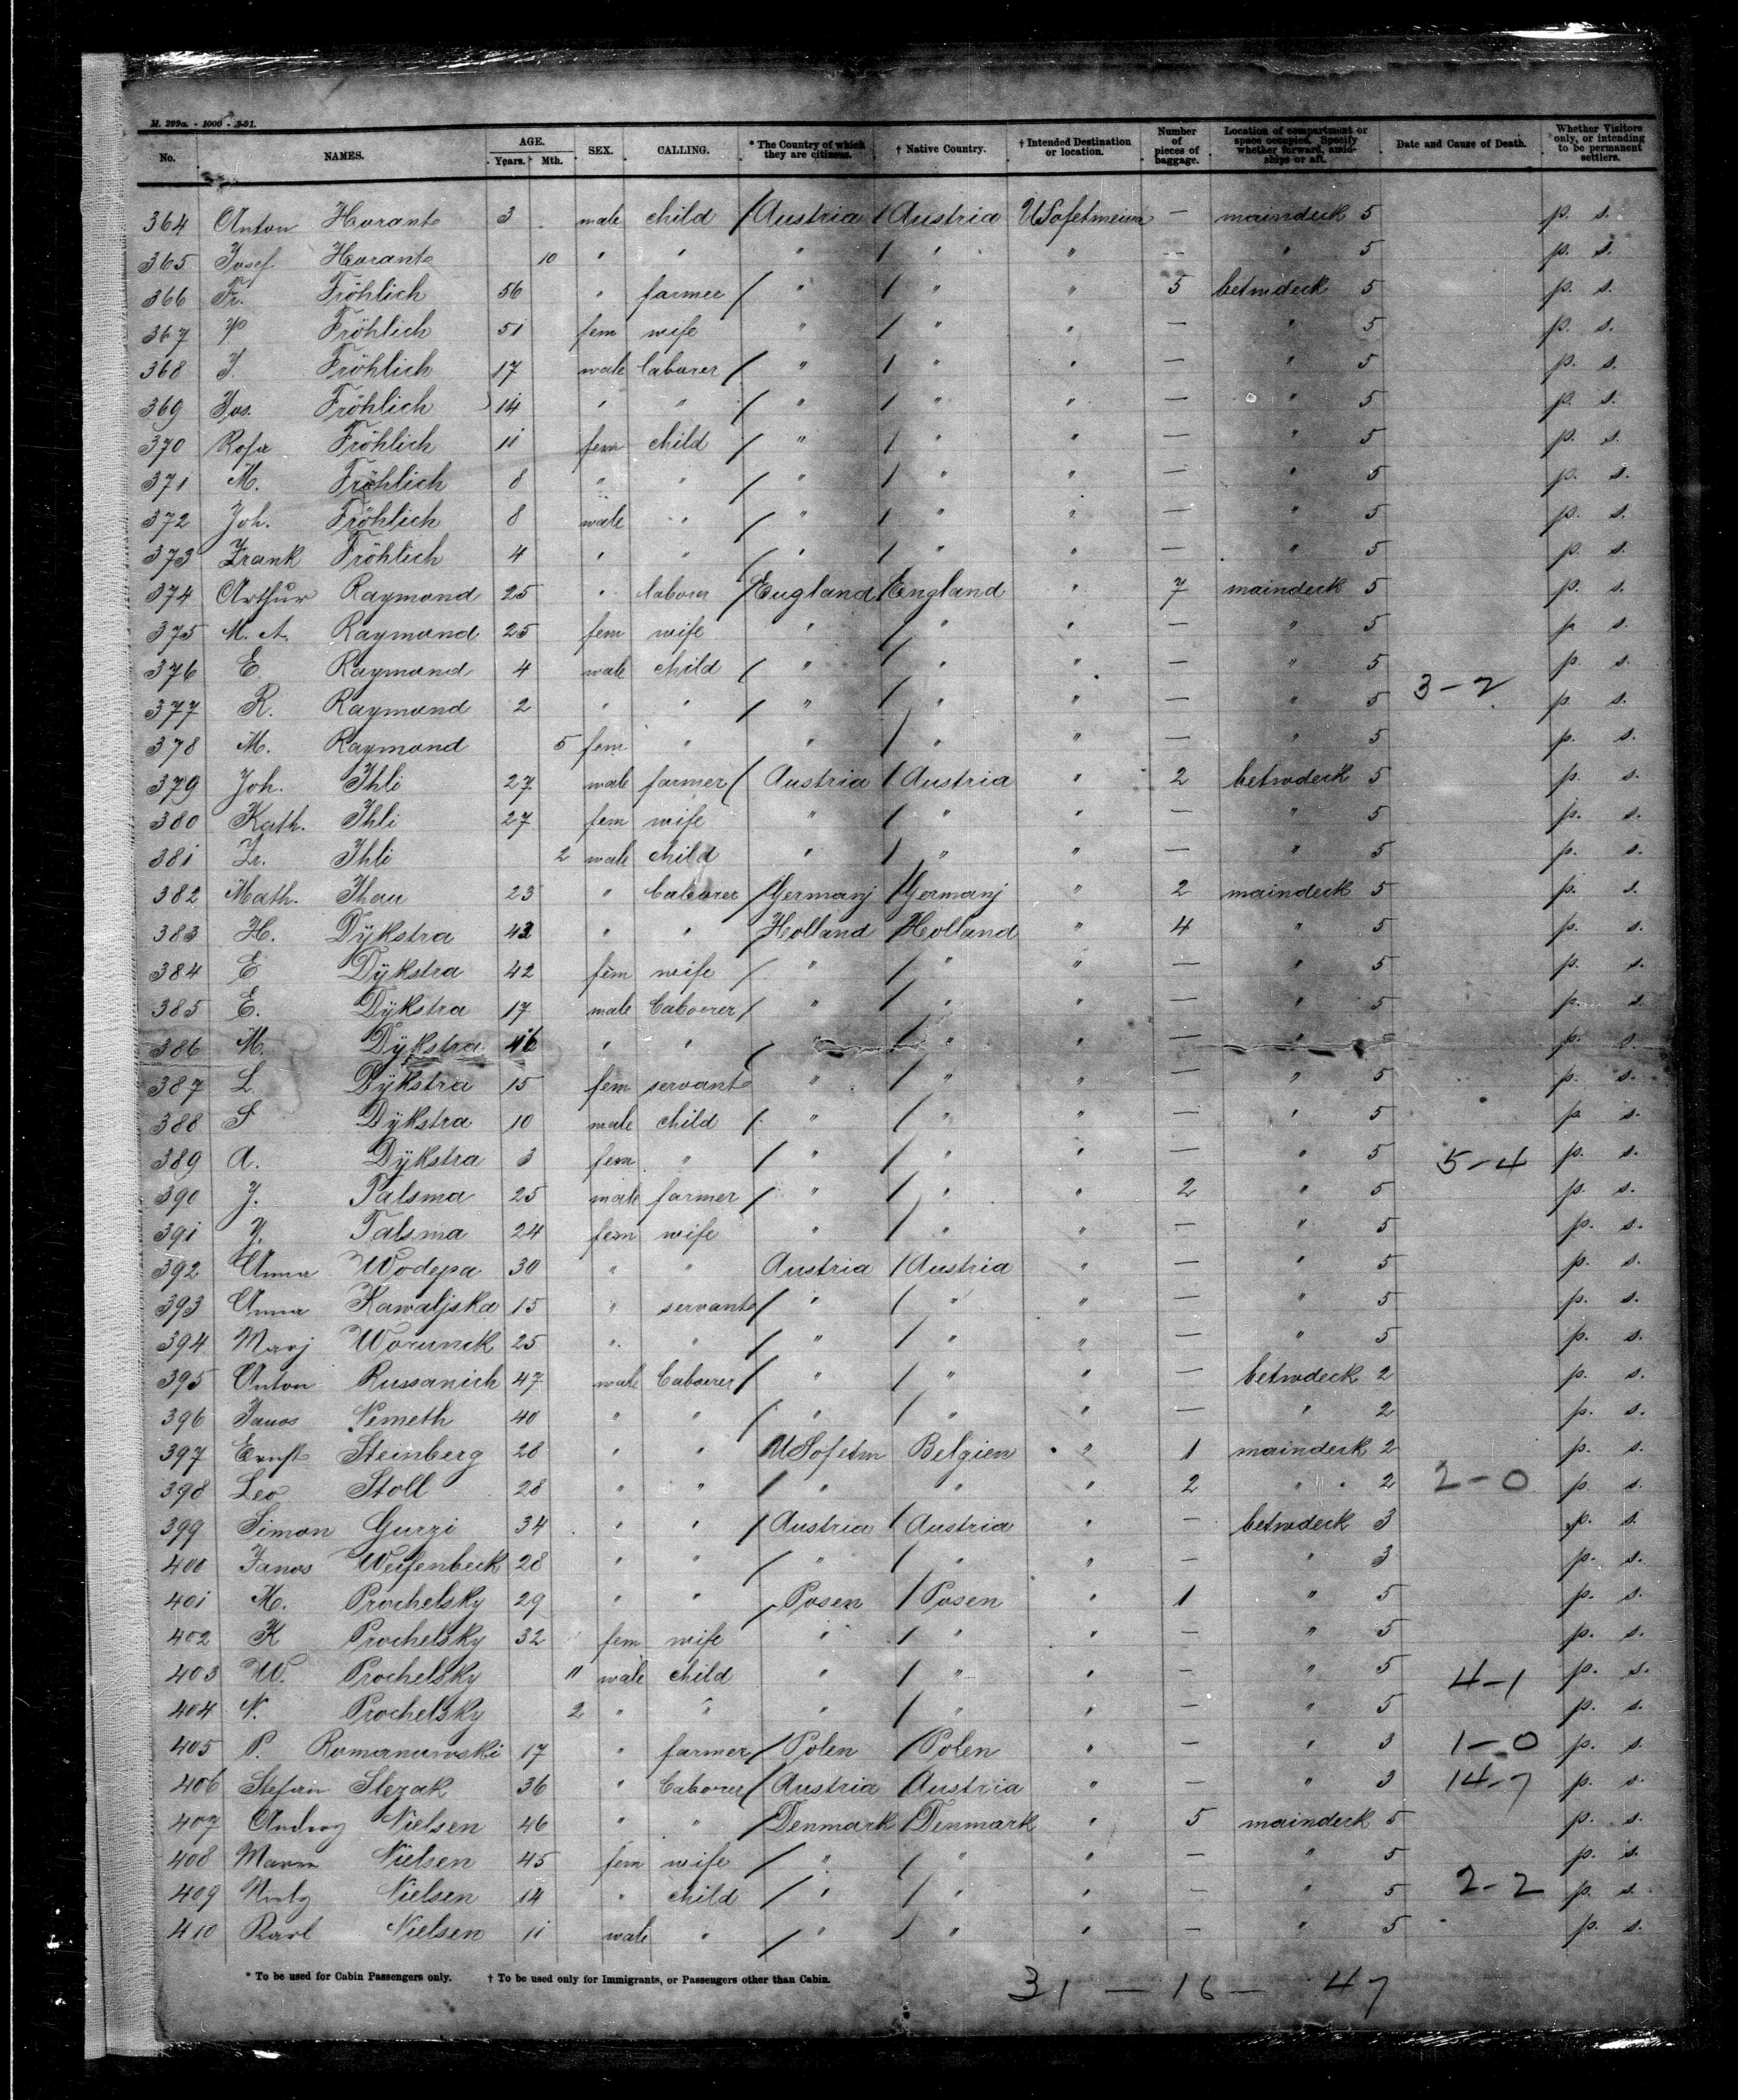 M. 299a. - 1000 - 3-91.
No. NAMES. AGE. Years. Mth. SEX. CALLING. * The Country of which they are citizens. † Native Country. † Intended Destination or location. Number of pieces of baggage. Location of compartment or space occupied. Specify whether forward, amidships or aft. Date and Cause of Death. Whether Visitors only, or intending to be permanent settlers.
364 Anton Horante 3 male child / Austria / Austria USofetmeiva — maindeck 5 p. s.
365 Josef Horante 10 " " " / " " — " 5 p. s.
366 Fr. Fröhlich 56 " farmer / " / " " 5 betwdeck 5 p. s.
367 Fröhlich 51 fem wife " / " " — " 5 p. s.
368 J. Fröhlich 17 male laborer / " / " " — " 5 p. s.
369 Jos. Fröhlich 14 " " / " / " " — " 5 p. s.
370 Rosa Fröhlich 11 fem child / " / " " — " 5 p. s.
371 M. Fröhlich 8 " " / " / " " — " 5 p. s.
372 Joh. Fröhlich 8 male " / " / " " — " 5 p. s.
373 Frank Fröhlich 4 " " / " / " " — " 5 p. s.
374 Arthur Raymond 25 " laborer / England / England " 7 maindeck 5 p. s.
375 M. A. Raymond 25 fem wife " / " " — " 5 p s.
376 E. Raymond 4 male child / " / " " — " 5 p. s.
377 R. Raymond 2 " " / " / " " — " 5 3-2 p. s.
378 M. Raymond 5 fem " " / " " — " 5 p. s.
379 Joh. Ihli 27 male farmer / Austria / Austria " 2 betwdeck 5 p. s.
380 Kath. Ihli 27 fem wife " / " " — " 5 p. s.
381 Fr. Ihli 2 male child " / " " — " 5 p. s.
382 Math. Thau 23 " laborer / Germanj / Germanj " 2 maindeck 5 p. s.
383 H. Dÿkstra 42 " " / Holland / Holland " 4 " 5 p. s.
384 E Dÿkstra 42 fem wife / " / " " — " 5 p. s.
385 E. Dÿkstra 17 male laborer / " / " " — " 5 p. s.
386 M. Dÿkstra 16 " " / " / " " — " 5 p. s.
387 L. Dÿkstra 15 fem servante " / " " — " 5 p. s.
388 S Dÿkstra 10 male child / " / " " — " 5 p s.
389 A. Dÿkstra 3 fem " / " / " " — " 5 5-4 p. s.
390 J. Talsma 25 male farmer / " / " " 2 " 5 p. s.
391 Y. Talsma 24 fem wife " / " " — " 5 p. s.
392 Anna Wodepa 30 " " Austria / Austria " — " 5 p. s.
393 Anna Kawaljska 15 " servante / " / " " — " 5 p. s.
394 Marj Worunek 25 " " / " / " " — " 5 p. s.
395 Anton Russanich 47 male laborer / " / " " — betwdeck 2 p. s.
396 Janos Nemeth 40 " " / " / " " — " 2 p. s.
397 Ernst Steinberg 28 " " USofetm Belgien " 1 maindeck 2 p. s.
398 Leo Stoll 28 " " / " " " 2 " 2 2-0 p. s.
399 Simon Gurzi 34 " " / Austria / Austria " — betwdeck 3 p. s.
400 Janos Weifenbeck 28 " " / " / " " — " 3 p. s.
401 M. Prochelsky 29 " " / Posen / Posen " 1 " 5 p. s.
402 K Prochelsky 32 fem wife " / " " — " 5 p. s.
403 W. Prochelsky 11 male child " / " " — " 5 4-1 p. s.
404 N. Prochelsky 2 " " " / " " — " 5 p. s.
405 P. Romanowski 17 " farmer / Polen / Polen " — " 3 1-0 p. s.
406 Stefan Slezak 36 " laborer / Austria / Austria " — " 3 14-7 p. s.
407 Nielsen 46 " " / Denmark / Denmark " 5 maindeck 5 p. s.
408 Maren Nielsen 45 fem wife / " / " " — " 5 p. s.
409 Nielsen 14 " child / " / " " — " 5 2-2 p. s.
410 Karl Nielsen 11 male " / " / " " — " 5 p. s.
* To be used for Cabin Passengers only. † To be used only for Immigrants, or Passengers other than Cabin.
31 — 16 — 47